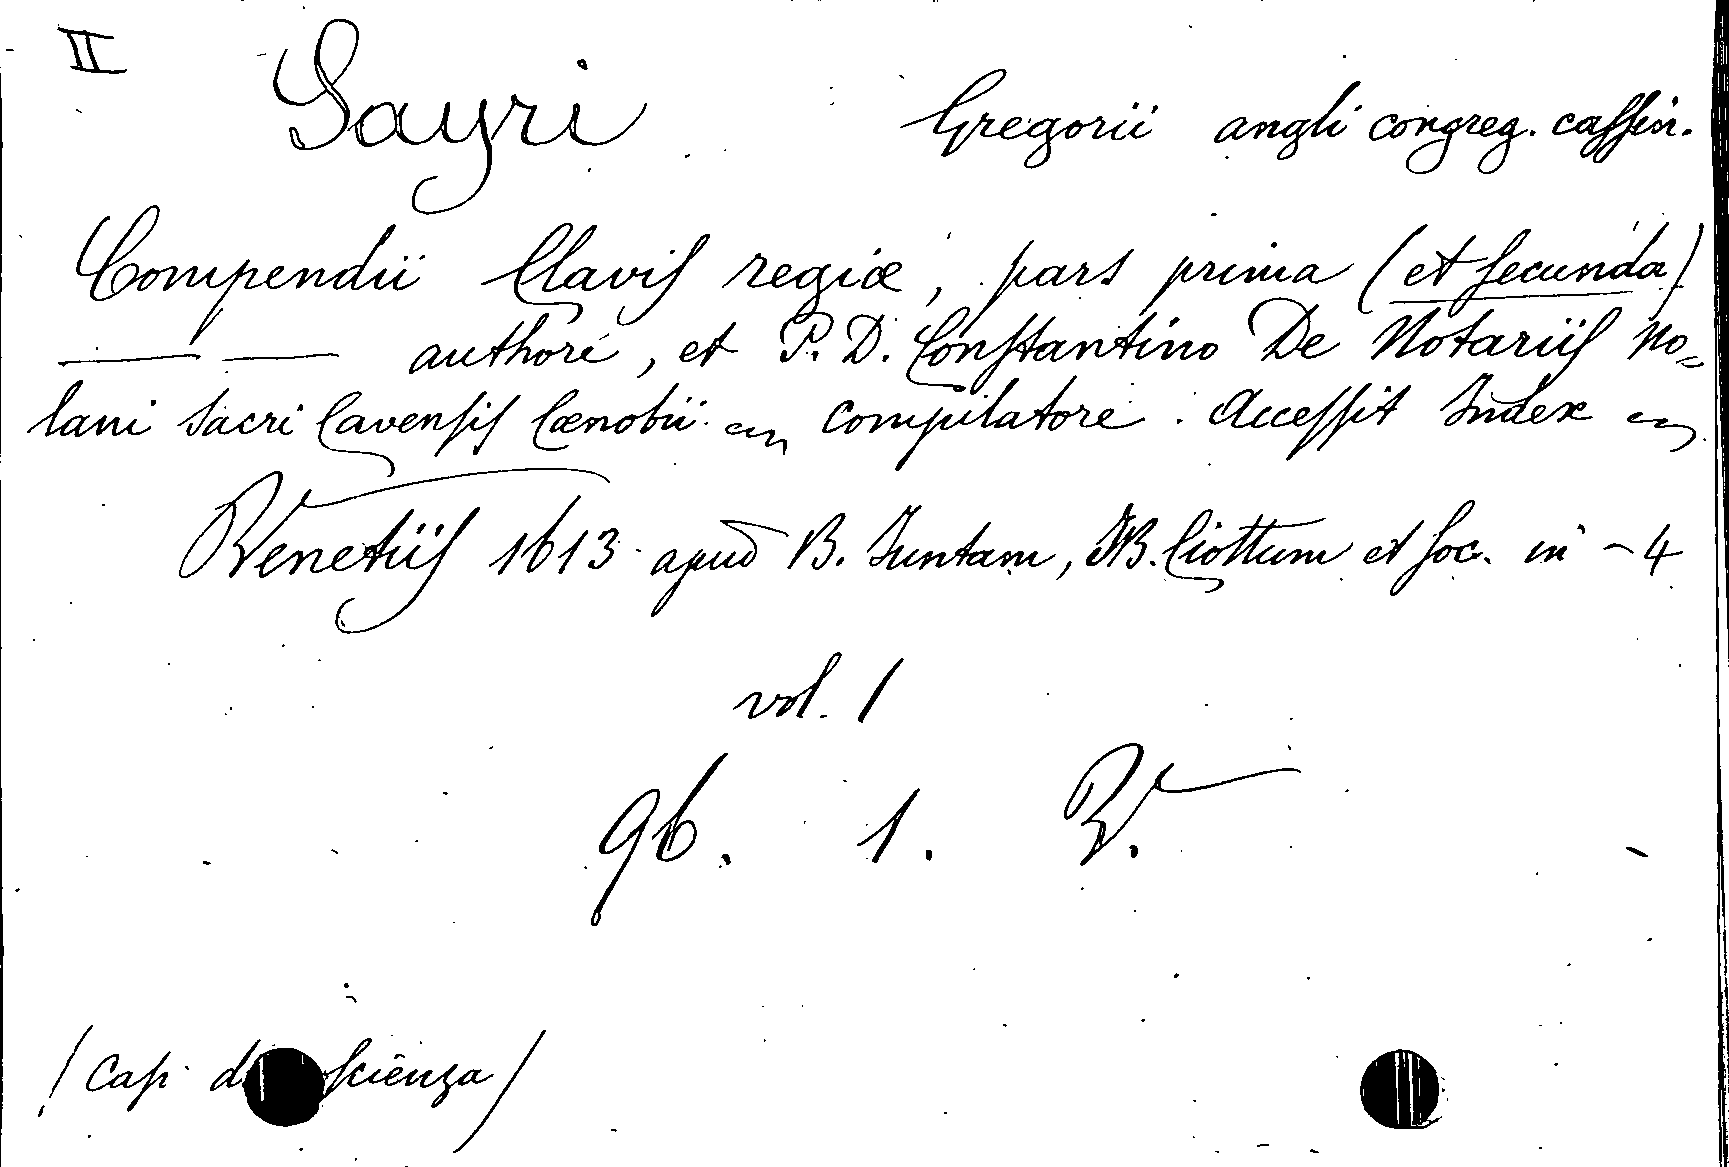 II Sayri Gregorii angli congreg. cassin.
Compendii Clavis regiæ, pars prima (et secunda)
—— —— authore, et P. D. Constantino De Notariis No=
lani sacri Cavensis Cœnobii compilatore. Accessit Index
Venetiis 1613 apud B. Juntam, JB. Ciottum et soc. in-4
vol. 1
96. 1. V.
/ Cas